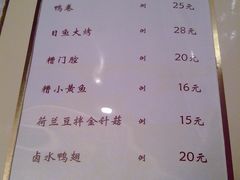 鸭卷 例 25元
目鱼大烤 例 28元
糟门腔 例 20元
糟小黄鱼 例 16元
荷兰豆拌金针菇 例 15元
卤水鸭翅 例 20元